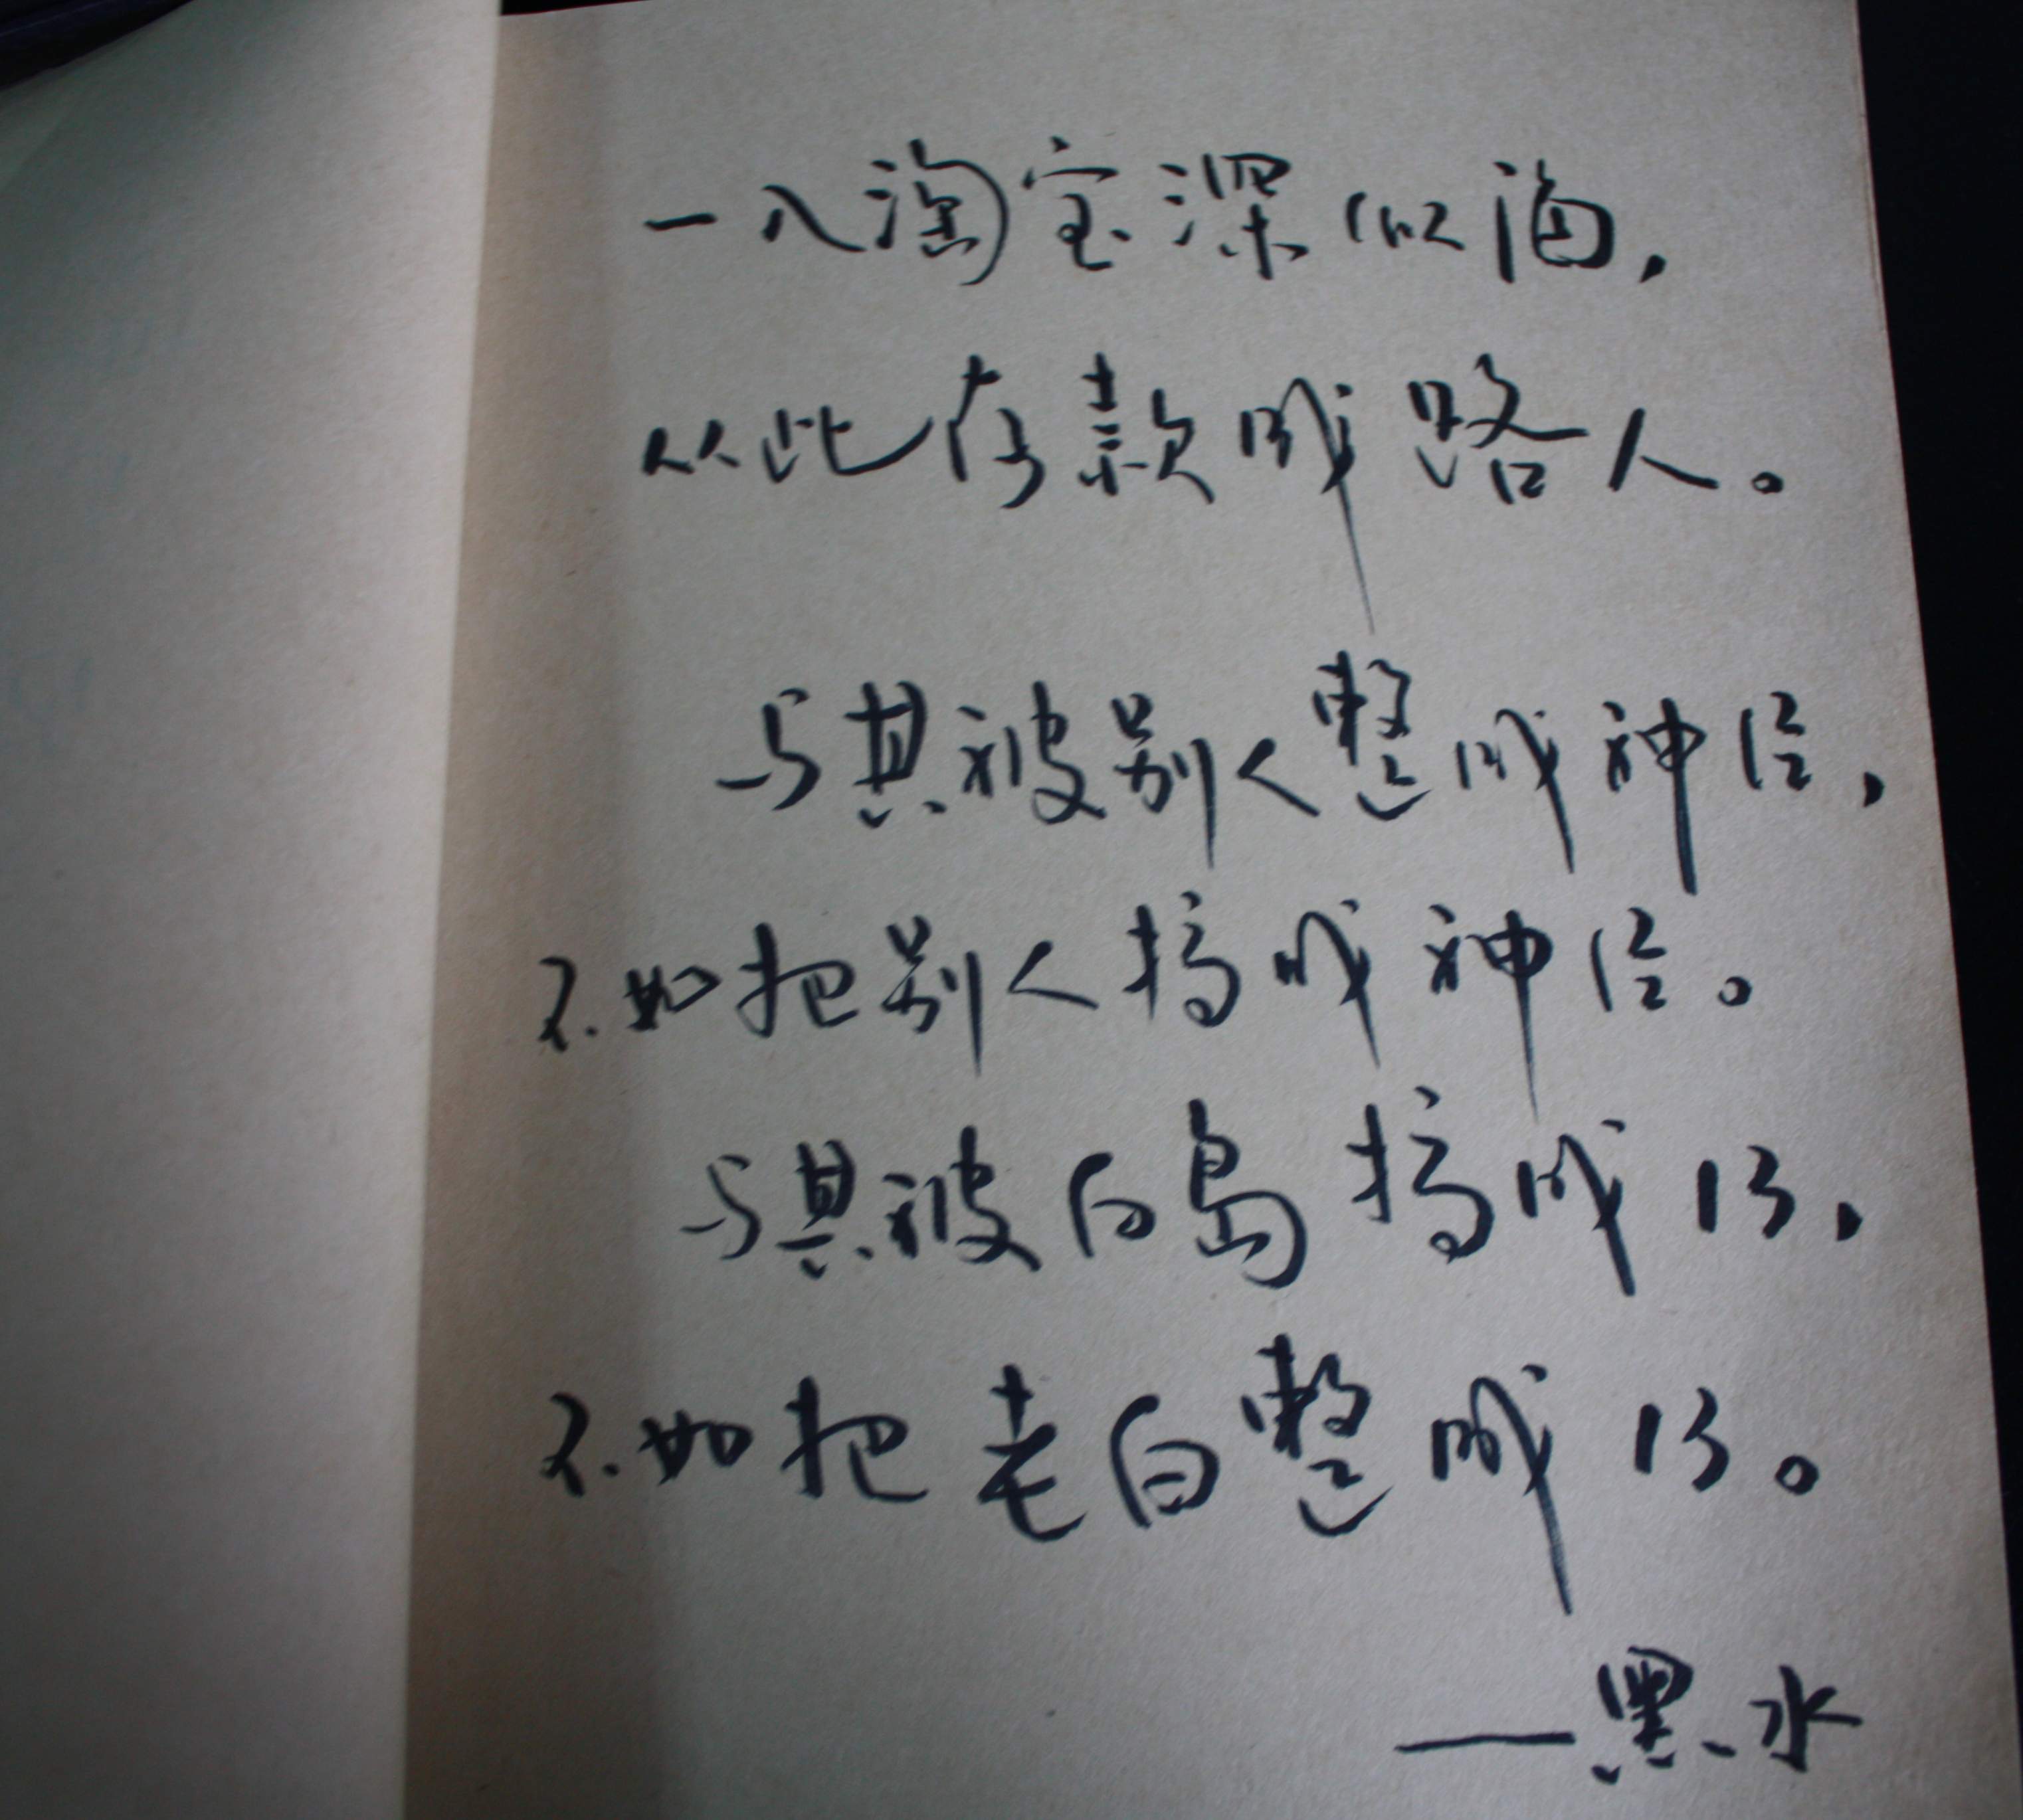 一入淘宝深似海,
从此存款成路人。
与其被别人整成神经,
不如把别人搞成神经。
与其被白岛搞成13,
不如把老白整成13。
——黑水